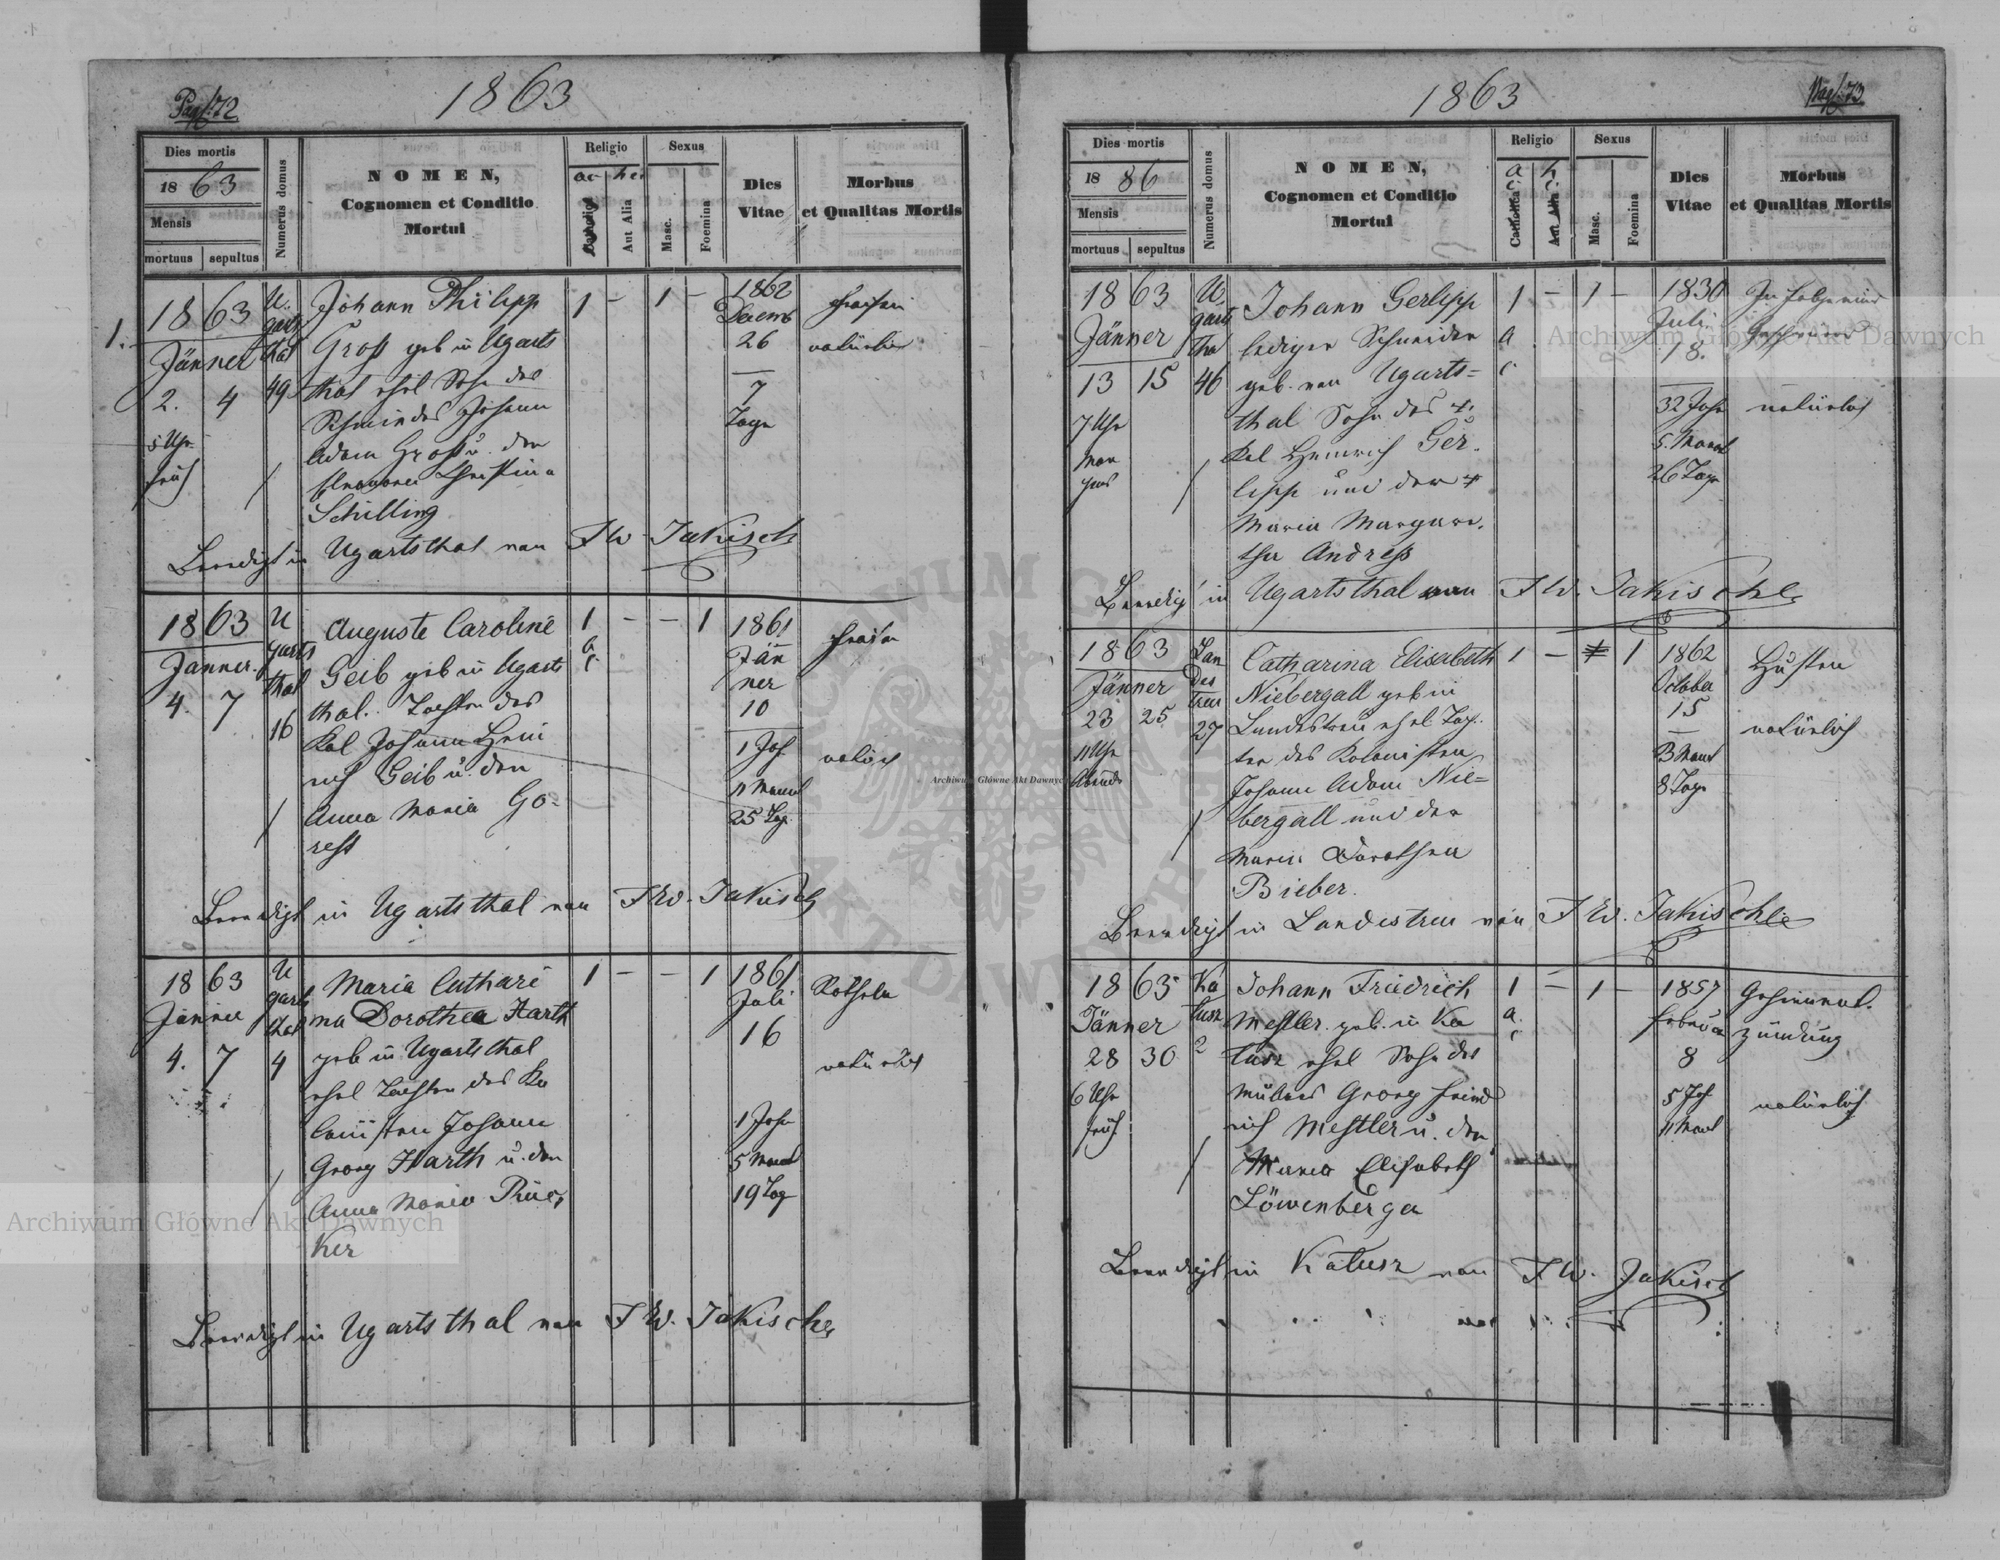 Pag. 72
1863
Dies mortis
1863
Mensis
mortuus sepultus
Numerus domus
NOMEN,
Cognomen et Conditio
Mortui
Religio
ac hc
Aut Alia
Sexus
Masc.
Foemina
Dies
Vitae
Morbus
et Qualitas Mortis
1.
1863
Jänner
2. 4
5 Uhr
früh
U.
garts
thal
49
Johann Philipp
Groß geb in Ugarts
thal ehel Sohn des
Schmiedes Johann
Adam Groß u. der
Christina
Schilling
1 – 1 –
1862
Decemb
26
7
Tage
Fraisen
natürlich
Beerdigt in Ugartsthal von FW Jakisch
1863
Jänner.
4. 7
U
garts
thal
16
Auguste Caroline
Geib geb in Ugarts
thal. Tochter des
Kol Johann Hein
rich Geib u. der
Anna Maria Go-
ress
1 – – 1
1861
Jän
ner
10
1 Jahr
11 Monat
25 Tag
Fraisen
natürlich
Beerdigt in Ugartsthal von FW. Jakisch
1863
Jänner
4. 7
U
garts
thal
4
Maria Cathari
na Dorothea Harth
geb in Ugartsthal
ehel Tochter des Ko
lonisten Johann
Georg Harth u. der
Anna Maria Rüc
ker
1 – – 1
1861
Juli
16
1 Jahr
5 Monat
19 Tag
Rötheln
natürlich
Beerdigt in Ugartsthal von FW. Jakisch
1863
Pag. 73
Dies mortis
1886
Mensis
mortuus sepultus
Numerus domus
NOMEN,
Cognomen et Conditio
Mortui
Religio
a c h c
Catholica
Aut Alia
Sexus
Masc.
Foemina
Dies
Vitae
Morbus
et Qualitas Mortis
1863
Jänner
13 15
7 Uhr
Mor
gens
U.
garts
thal
46
Johann Gerlipp
lediger Schneider
geb. von Ugarts=
thal Sohn des +
Kol Heinrich Ger.
lipp und der +
Maria Margare.
tha Andreß
1 – 1 –
a
c
1830
Juli
18.
32 Jahr
5. Monat
26 Tage
In Folge eines
natürlich
Beerdigt in Ugartsthal von FW. Jakisch
1863
Jänner
23 25
11 Uhr
Abends
Lan
des
treu
27
Catharina Elisabeth
Niebergall geb in
Landestreu ehel Toch.
ter des Kolonisten
Johann Adam Nie=
bergall und der
Maria Dorothea
Bieber.
1 – 1
1862
October
15
3 Monat
8 Tage
Husten
natürlich
Beerdigt in Landestreu von FW. Jakisch
1863
Jänner
28 30
6 Uhr
früh
Ka
lusz
2
Johann Friedrich
Meßler. geb. in Ka
lusz ehel Sohn des
Müllers Georg Fried
rich Meßler u. der
Maria Elisabeth
Löwenberger
1 – 1 –
a.
c
1857
Februa
8
5 Jah
11 Monat
Gehirnent.
zündung
natürlich
Beerdigt in Kalusz von FW. Jakisch
Archiwum Główne Akt Dawnych
Archiwum Główne Akt Dawnych
Archiwum Główne Akt Dawnych